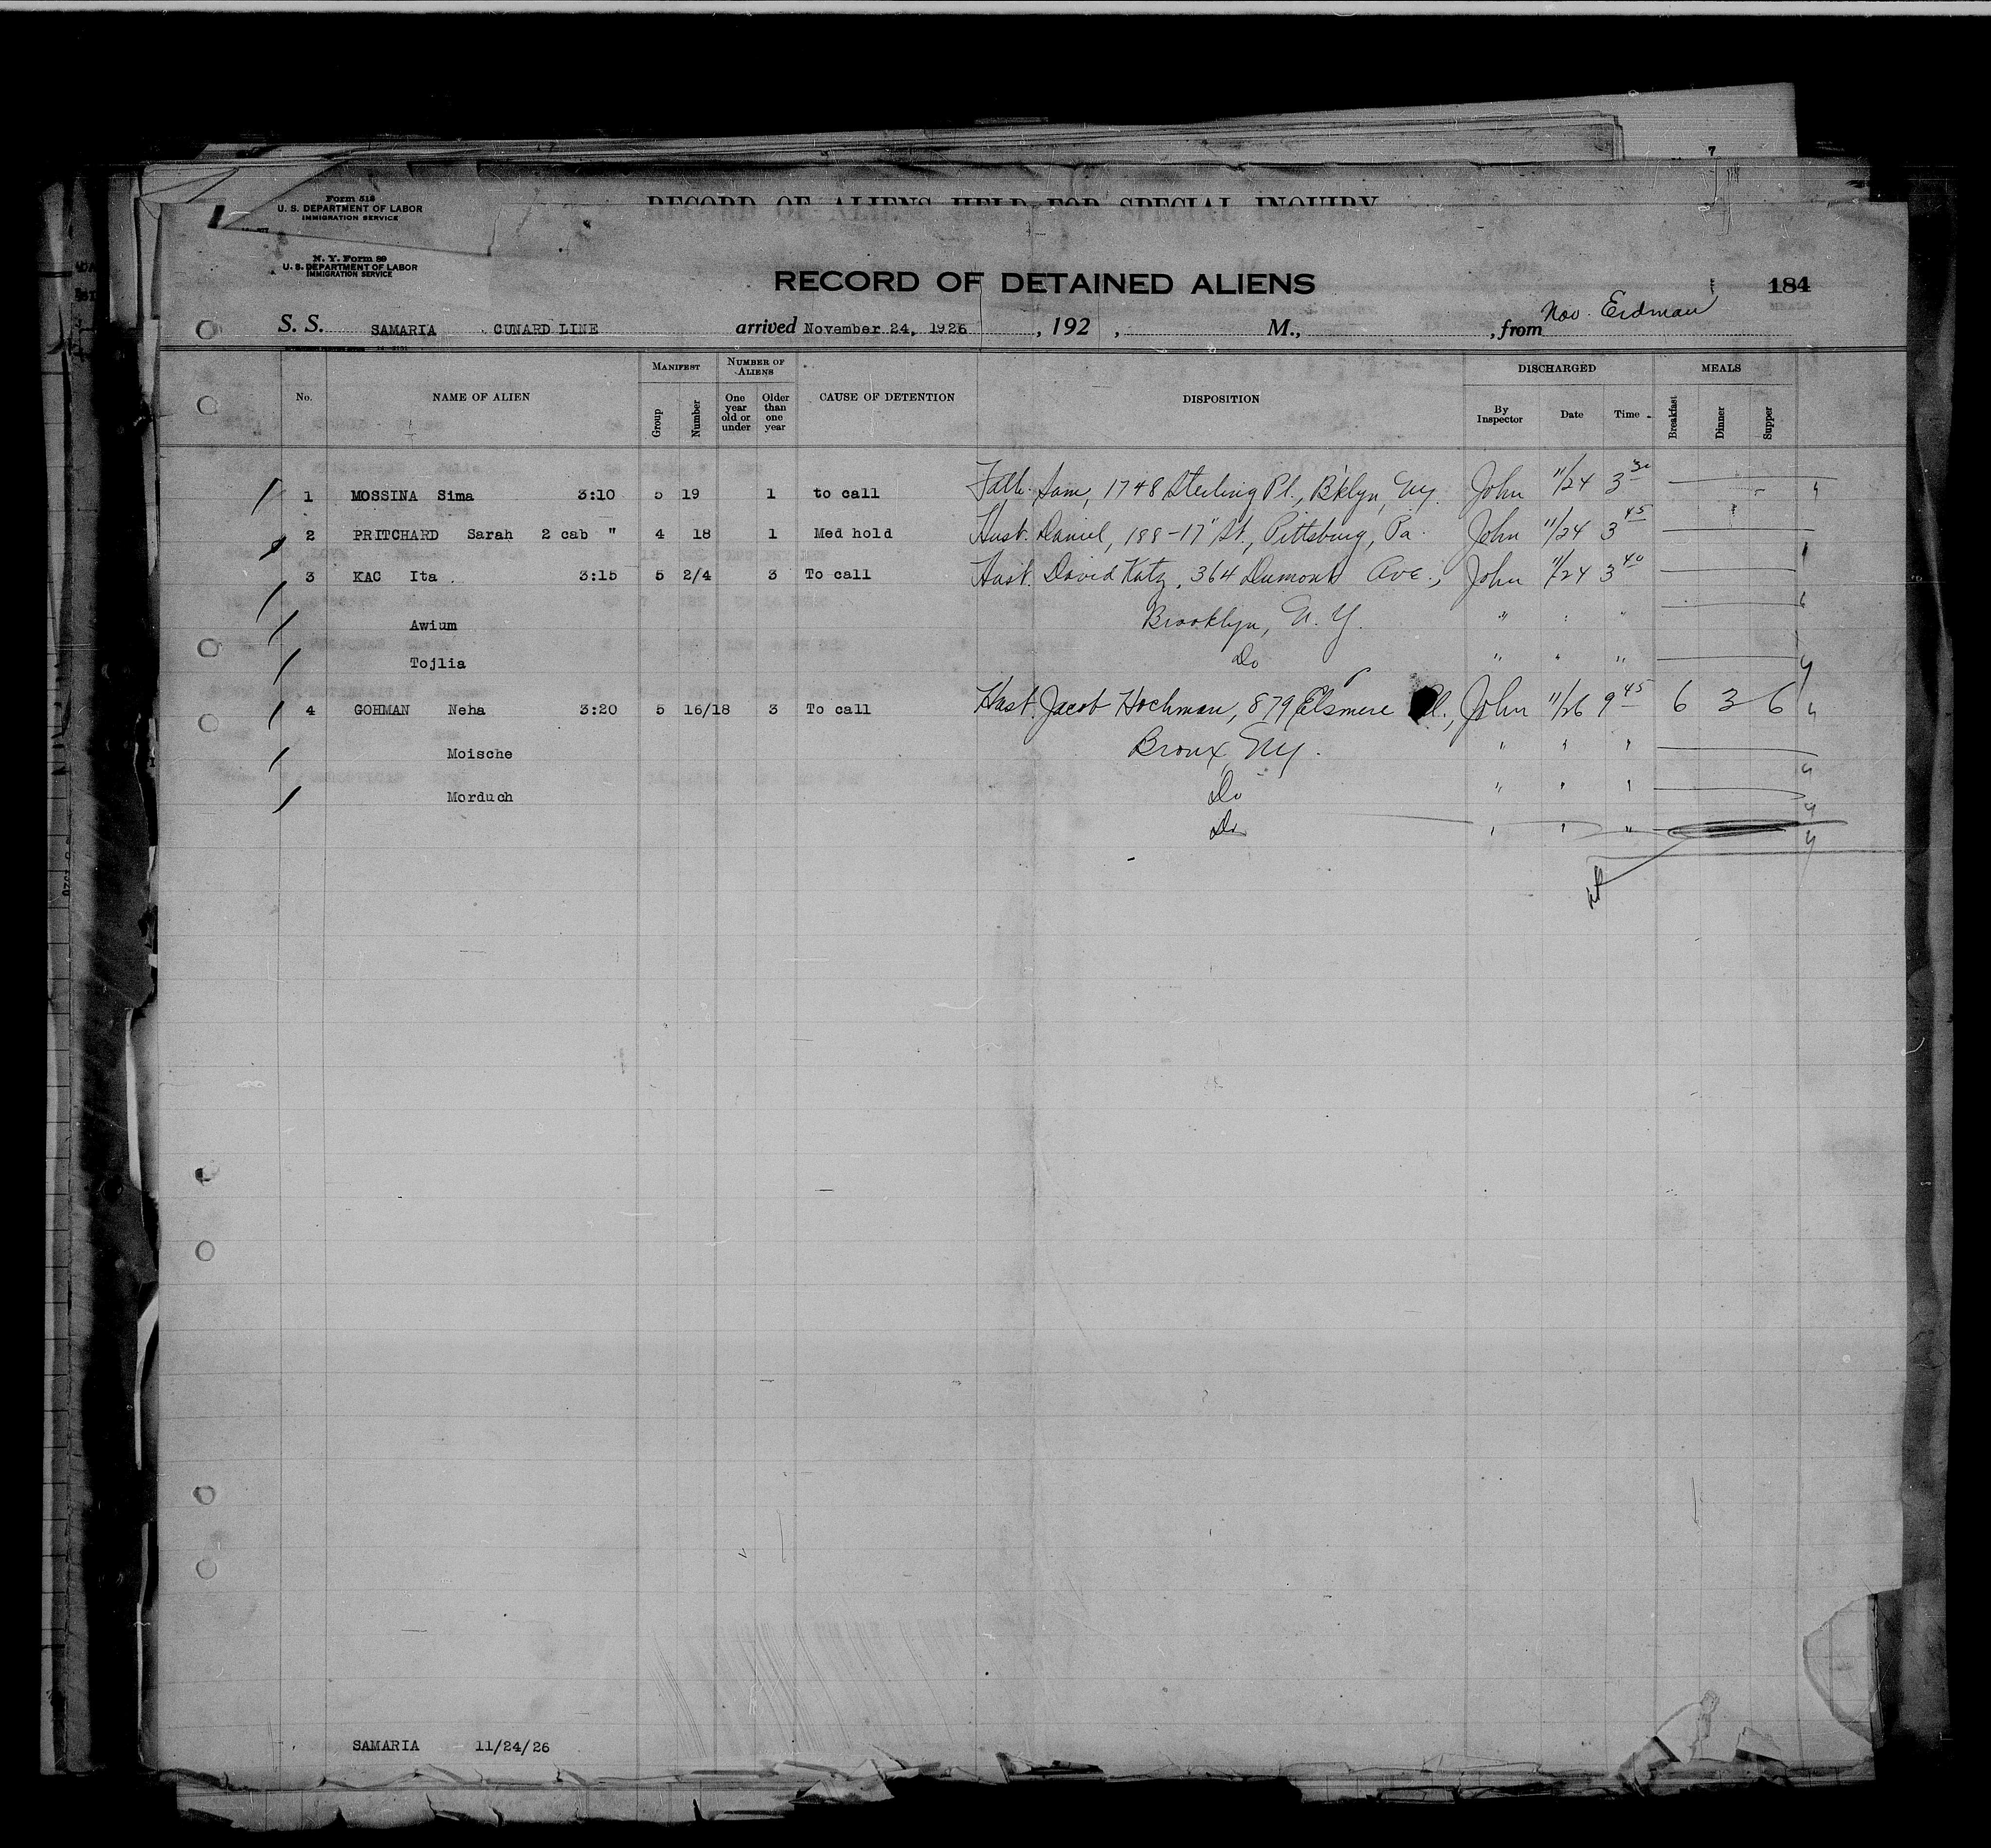 Form 518
U. S. DEPARTMENT OF LABOR
IMMIGRATION SERVICE
RECORD OF ALIENS HELD FOR SPECIAL INQUIRY
7
N. Y. Form 89
U. S. DEPARTMENT OF LABOR
IMMIGRATION SERVICE
RECORD OF DETAINED ALIENS
184
S. S. SAMARIA CUNARD LINE arrived November 24, 1926, 192 , M., , from Nov. Erdman
No. NAME OF ALIEN MANIFEST Group Number NUMBER OF ALIENS One year old or under Older than one year CAUSE OF DETENTION DISPOSITION DISCHARGED By Inspector Date Time MEALS Breakfast Dinner Supper
1 MOSSINA Sima 3:10 5 19 1 to call Fath. Sam, 1748 Sterling Pl., B'klyn, Ny. John 11/24 3 30
2 PRITCHARD Sarah 2 cab " 4 18 1 Med hold Husb. Daniel, 188-17" St., Pittsburg, Pa. John 11/24 3 45
3 KAC Ita 3:15 5 2/4 3 To call Husb. David Katz, 364 Dumont Ave., John 11/24 3 40
Awium Brooklyn, N. Y. " " "
Tojlia Do " " "
4 GOHMAN Neha 3:20 5 16/18 3 To call Husb. Jacob Hochman, 879 Elsmere Pl., John 11/26 9 45 6 3 6
Moische Bronx, Ny. " " "
Morduch Do " " "
Do " " "
SAMARIA 11/24/26